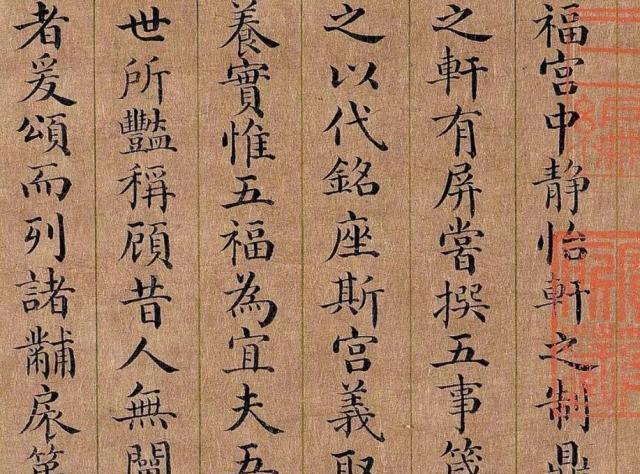 福宫中静怡軒之制鼎
之軒有屏嘗撰五事箋
之以代銘座斯宫義取
養實惟五福為宜夫五
世所豔稱顧昔人無闡
者爰頌而列諸黼扆第